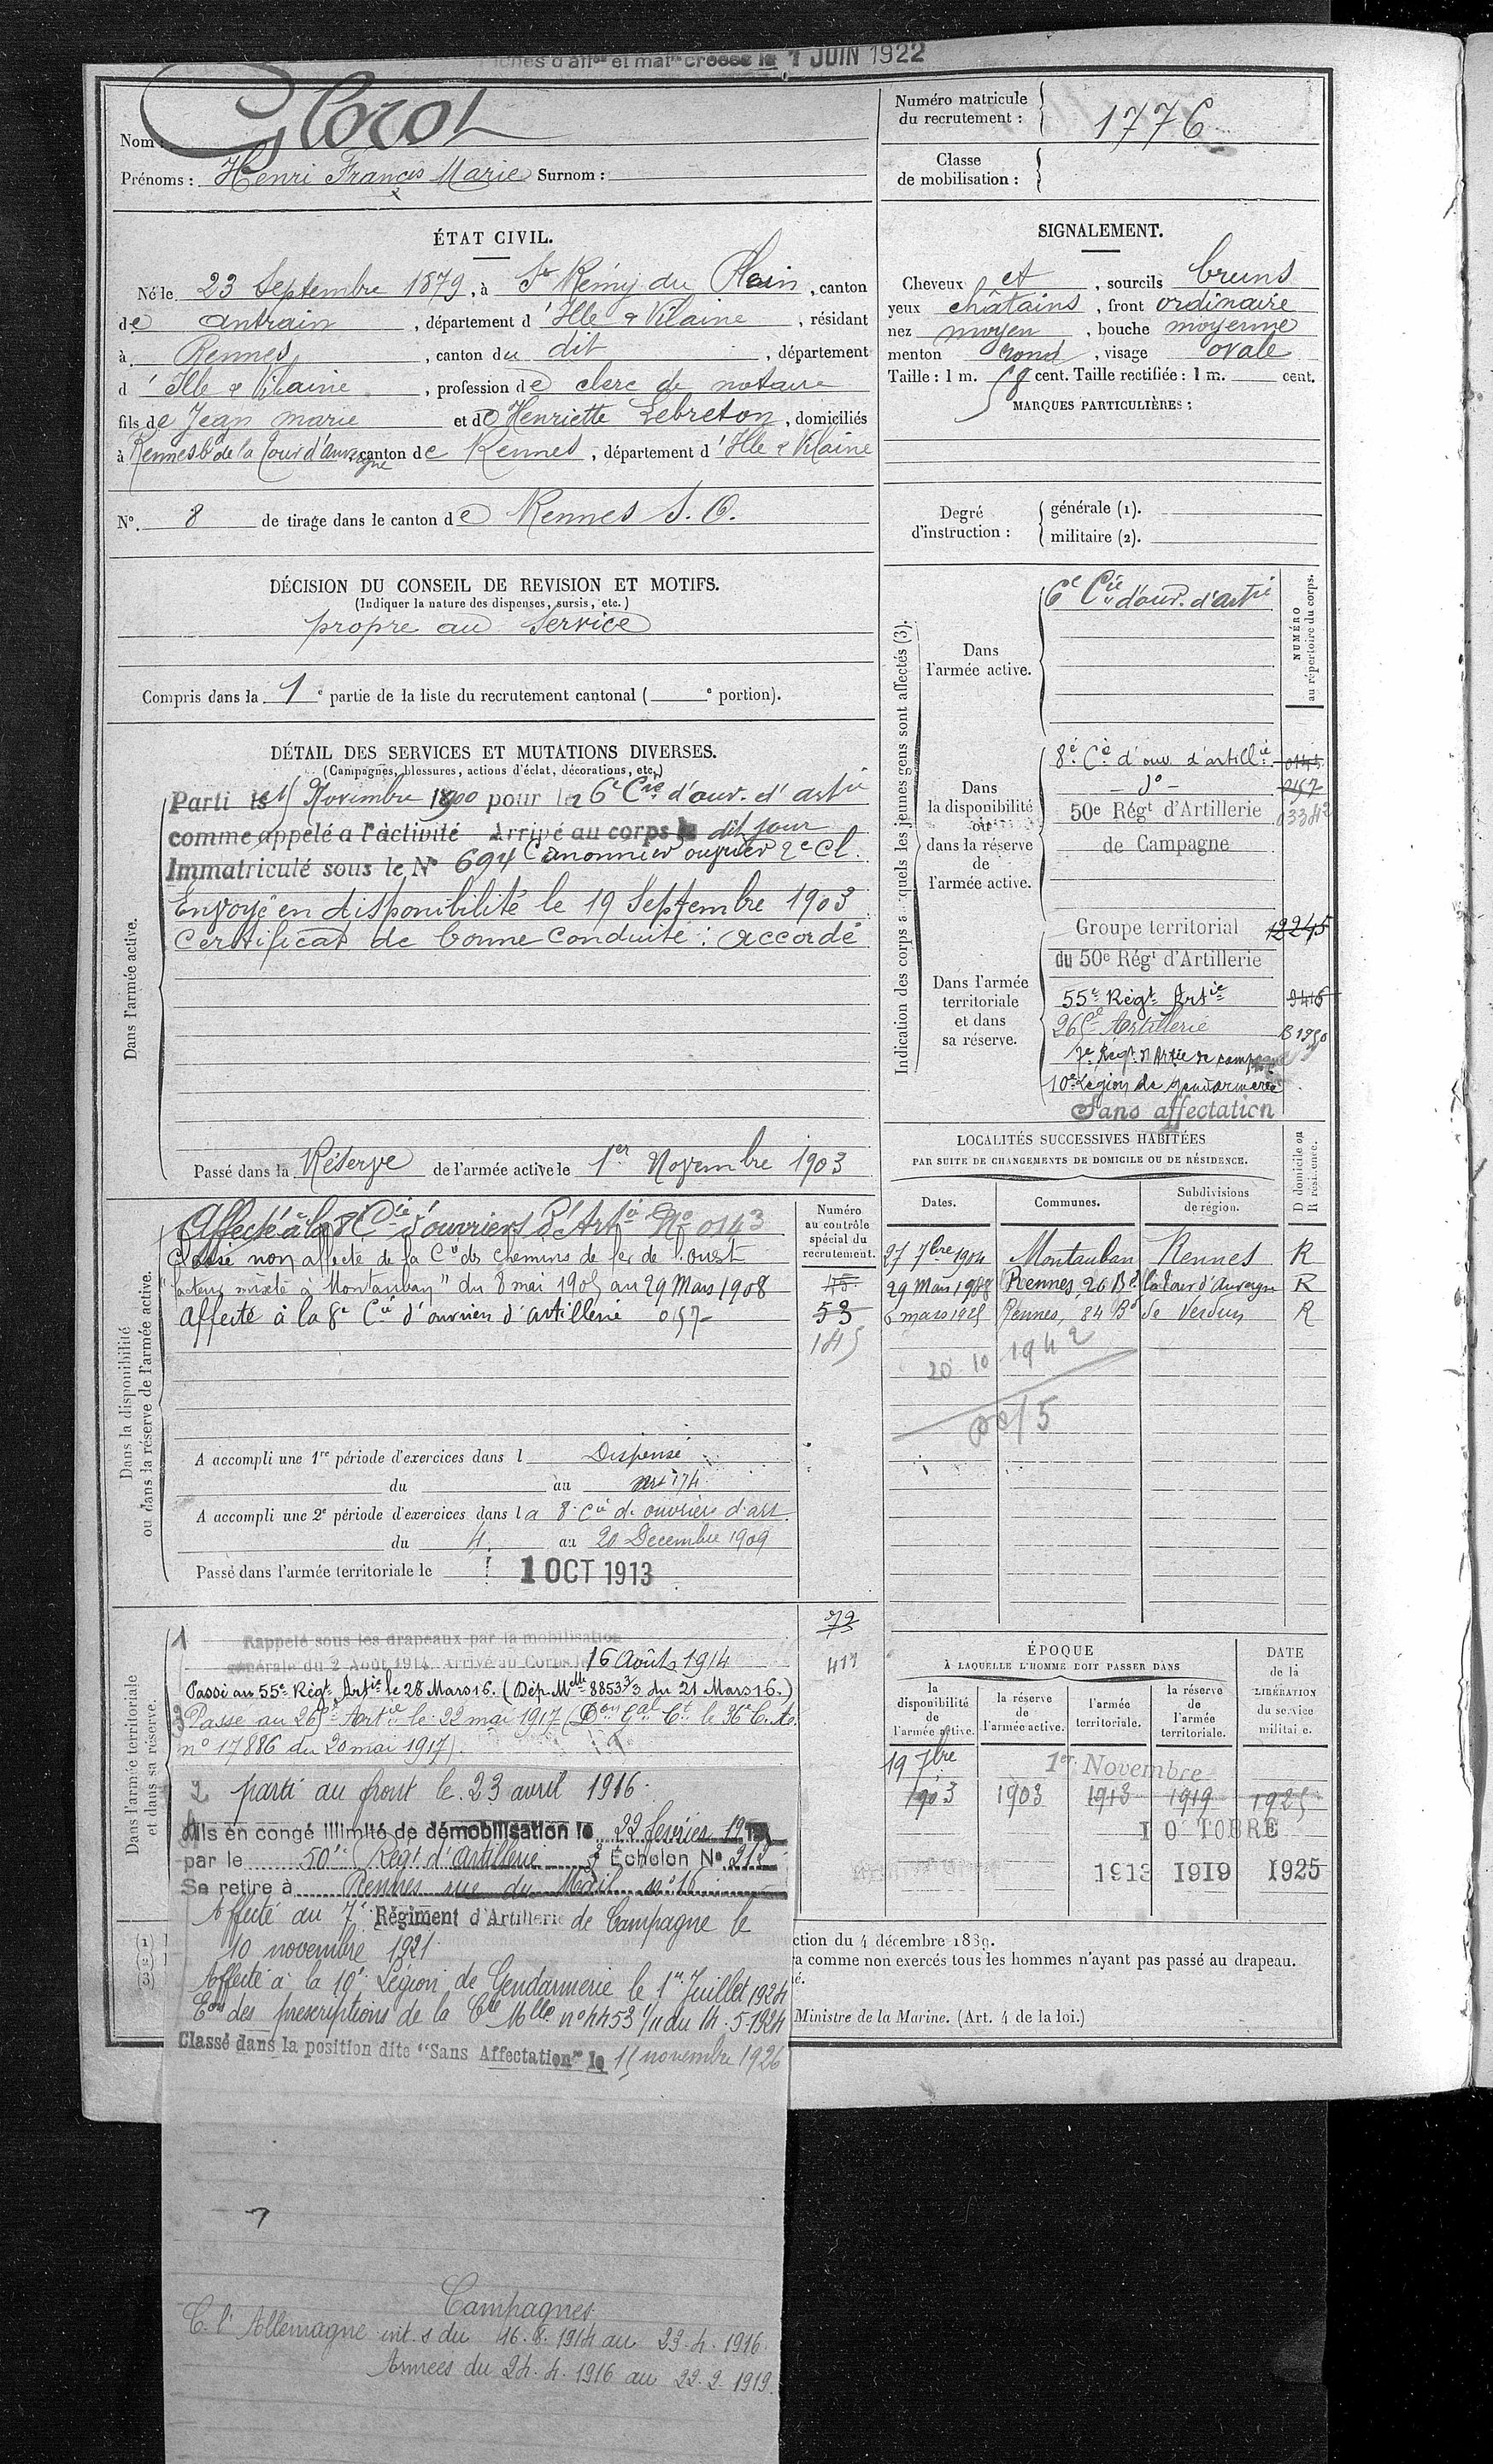 Fiches d'aff^on et mat^le créées le 1 JUIN 1922
Nom : Glorot
Prénoms : Henri Francis Marie Surnom :
Numéro matricule du recrutement : 1776
Classe de mobilisation :
ÉTAT CIVIL.
Né le 23 Septembre 1879, à St Rémy du Plain, canton
de Antrain, département d'Ille & Vilaine, résidant
à Rennes, canton du dit, département
d'Ille & Vilaine, profession de clerc de notaire
fils de Jean Marie et de Henriette Lebreton, domiciliés
à Rennes Bd de la Tour d'auvergne canton de Rennes, département d'Ille & Vilaine
N°. 8 de tirage dans le canton de Rennes S.O.
SIGNALEMENT.
Cheveux et, sourcils bruns
yeux châtains, front ordinaire
nez moyen, bouche moyenne
menton rond, visage ovale
Taille : 1 m. 58 cent. Taille rectifiée : 1 m. cent.
MARQUES PARTICULIÈRES :
Degré d'instruction :
générale (1).
militaire (2).
DÉCISION DU CONSEIL DE REVISION ET MOTIFS.
(Indiquer la nature des dispenses, sursis, etc.)
propre au service
Compris dans la 1e partie de la liste du recrutement cantonal ( e portion).
DÉTAIL DES SERVICES ET MUTATIONS DIVERSES.
(Campagnes, blessures, actions d'éclat, décorations, etc.)
Dans l'armée active.
Parti le 15 Novembre 1900 pour la 6e Cie d'ouv. d'artie
comme appelé a l'activité Arrivé au corps le dit jour
Immatriculé sous le N° 694 Canonnier ouvrier 2e Cl.
Envoyé en disponibilité le 19 Septembre 1903
Certificat de bonne conduite : accordé
Passé dans la Réserve de l'armée active le 1er Novembre 1903
Dans la disponibilité ou dans la réserve de l'armée active.
Affecté à la 8e Cie d'ouvriers d'Artie No 0143
Classé non affecté de la Cie des chemins de fer de l'ouest
"facteur mixte à Montauban" du 8 mai 1905 au 29 Mars 1908
Affecté à la 8e Cie d'ouvriers d'artillerie 057
Numéro au contrôle spécial du recrutement.
45
53
185
A accompli une 1re période d'exercices dans l Dispensé
du au Art 174
A accompli une 2e période d'exercices dans la 8e Cie d'ouvriers d'art.
du 4 au 20 Decembre 1909
Passé dans l'armée territoriale le 1 OCT 1913
Indication des corps auxquels les jeunes gens sont affectés (3).
NUMÉRO au répertoire du corps.
Dans l'armée active.
6e Cie d'ouv. d'artie
Dans la disponibilité ou dans la réserve de l'armée active.
8e Cie d'ouv. d'artillie 0143
- do - 057
50e Régt d'Artillerie 03342
de Campagne
Dans l'armée territoriale et dans sa réserve.
Groupe territorial 12245
du 50e Régt d'Artillerie
55e Régt Artie 9416
265e Artillerie B 1250
7e Régt d'Artie de campagne
10e Légion de gendarmerie
Sans affectation
LOCALITÉS SUCCESSIVES HABITÉES
PAR SUITE DE CHANGEMENTS DE DOMICILE OU DE RÉSIDENCE.
Dates. Communes. Subdivisions de région. D domicile ou R résidence.
27 7bre 1904 Montauban Rennes R
29 Mars 1908 Rennes, 26 Bd la Tour d'Auvergne R
6 mars 1925 Rennes, 84 Bd de Verdun R
20 10 1942
Dans l'armée territoriale et dans sa réserve.
1 Rappelé sous les drapeaux par la mobilisation
générale du 2 Août 1914. Arrivé au Corps le 16 Août 1914
79
413
Passé au 55e Régt Artie le 28 Mars 16. (Dép. Melle 8853 3/3 du 21 Mars 16.)
3 Passé au 265e Artie le 22 mai 1917 (Don Gal Ct le 36e C. A.
no 17886 du 20 mai 1917).
2 parti au front le 23 avril 1916.
4 Mis en congé illimité de démobilisation le 22 fevrier 1919
par le 50e Régt d'Artillerie 3 Échelon N° 212
Se retire à Rennes rue du Mail no 16
Affecté au 7e Régiment d'Artillerie de Campagne le
10 novembre 1921
Affecté à la 10e Légion de Gendarmerie le 1er Juillet 1924
Eon des prescriptions de la Cre Mlle no 4453 1/11 du 14.5.1924
Classé dans la position dite "Sans Affectation" le 15 novembre 1926
ÉPOQUE
À LAQUELLE L'HOMME DOIT PASSER DANS
la disponibilité de l'armée active.
la réserve de l'armée active.
l'armée territoriale.
la réserve de l'armée territoriale.
DATE de la LIBÉRATION du service militaire.
19 7bre 1er Novembre
1903 1903 1913 1919 1925
1 O TOBRE
1913 1919 1925
(1)
(2)
(3)
ction du 4 décembre 1889.
ra comme non exercés tous les hommes n'ayant pas passé au drapeau.
é.
Ministre de la Marine. (Art. 4 de la loi.)
Campagnes
C. l'Allemagne int. s du 16.8.1914 au 23.4.1916.
Armées du 24.4.1916 au 22.2.1919.